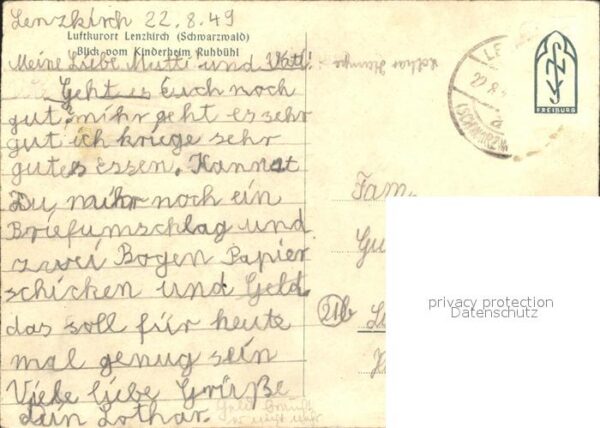 Lenzkirch 22.8.49
Luftkurort Lenzkirch (Schwarzwald)
Blick vom Kinderheim Ruhbühl
Meine Liebe Mutti und Vati!
Geht es Euch noch
gut. mihr geht es zehr
gut ich kriege sehr
gutes essen. Kannst
Du mihr noch ein
Briefumschlag und
zwei Bogen Papier
schicken und Geld
das soll für heute
mal genug sein
Viele liebe Grüße
Dein Lothar.
Geld braucht
er nicht mehr
Lothar
LE
22.8.4
a
(SCHWARZW
FREIBURG
Fam.
Gu
21b
privacy protection
Datenschutz